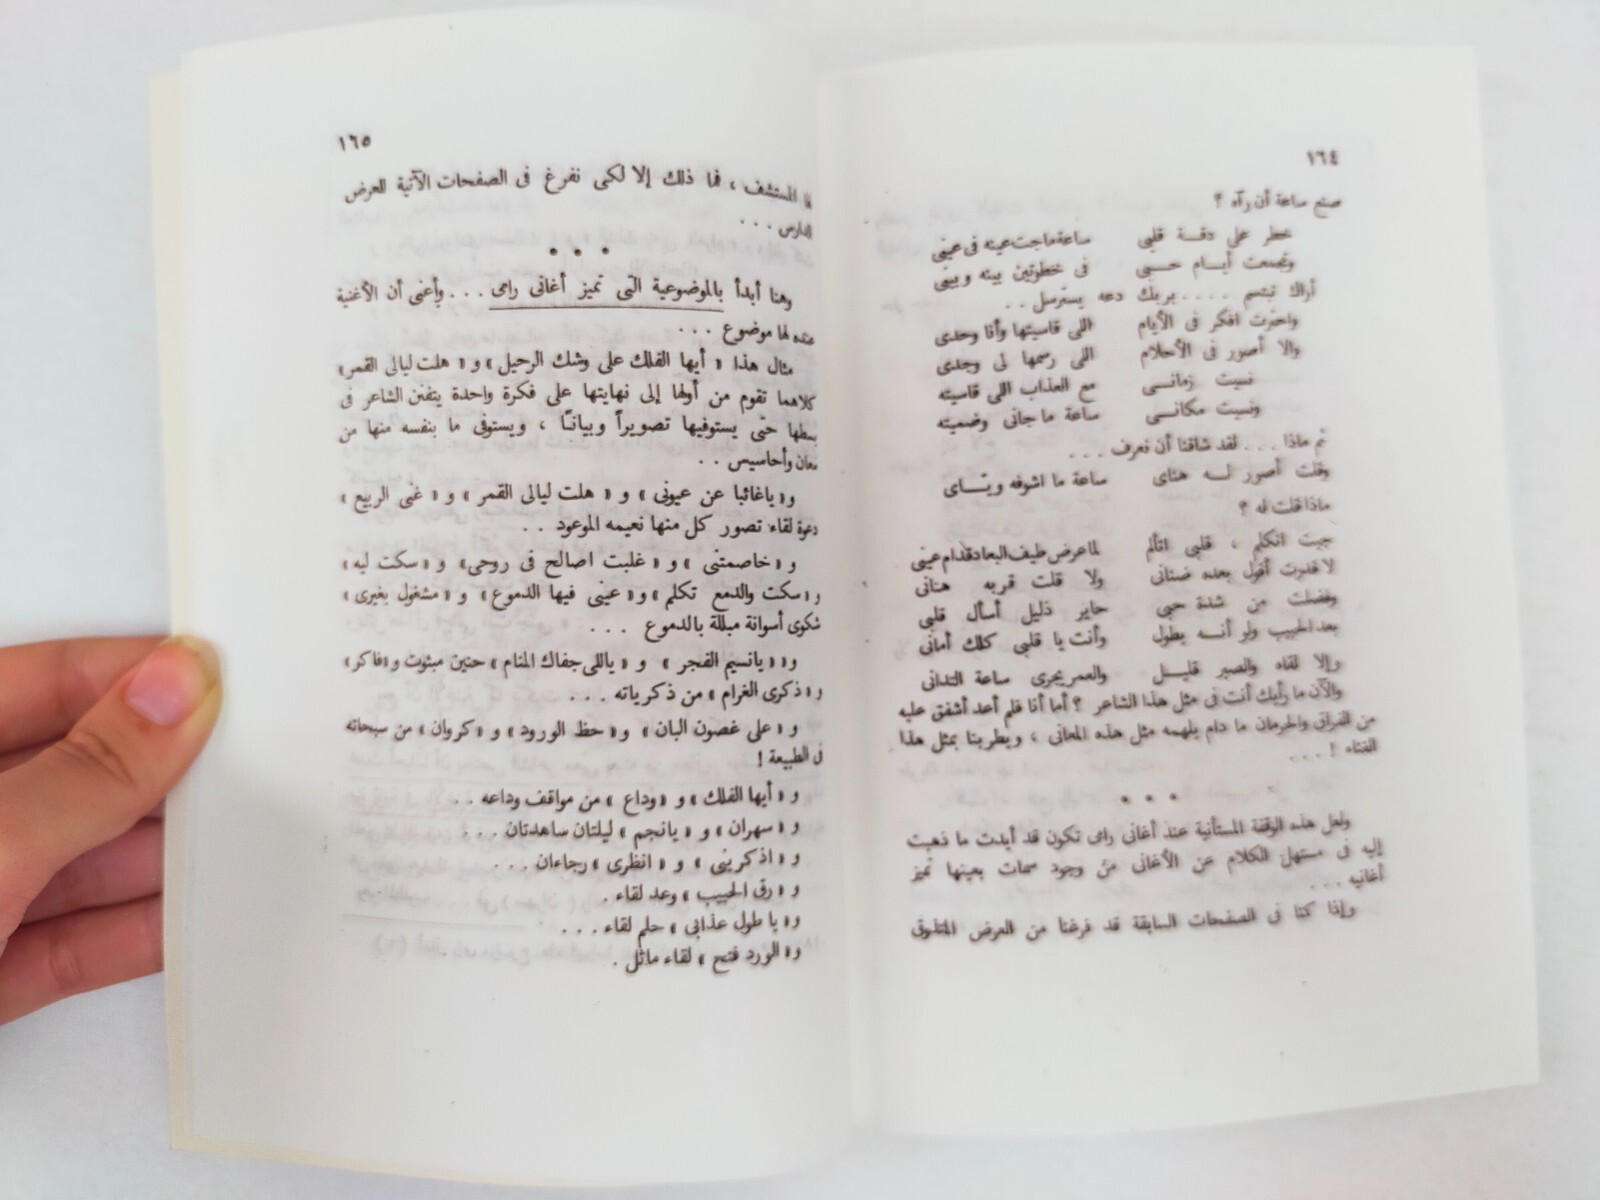 ١٦٤
صنع ساعة أن رآه ؟
خطر على دقة قلبى ساعة ماجت عينه فى عينى
وتجمعت أيام حبى فى خطوتين بينه وبينى
أراك تبتسم .... بربك دعه يسترسل ..
واحترت افكر فى الأيام اللى قاسيتها وأنا وحدى
والا أصور فى الأحلام اللى رسمها لى وجدى
نسيت زمانى مع العذاب اللى قاسيته
ونسيت مكانى ساعة ما جانى وضميته
ثم ماذا ... لقد شاقنا أن نعرف ...
وقلت أصور له هناى ساعة ما اشوفه وياى
ماذا قلت له ؟
جيت اتكلم ، قلبى اتألم لما عرض طيف البعاد قدام عينى
لا قدرت أقول بعده ضنانى ولا قلت قربه هنانى
وفضلت من شدة حبى حاير ذليل أسأل قلبى
بعد الحبيب ولو أنه يطول وأنت يا قلبى كلك أمانى
وإلا لقاه والصبر قليل والعمر يجرى ساعة التدانى
والآن ما رأيك أنت فى مثل هذا الشاعر ؟ أما أنا فلم أعد أشفق عليه
من الفراق والحرمان ما دام يلهمه مثل هذه المعانى ، ويطربنا بمثل هذا
الغناء ! ...
• • •
ولعل هذه الوقفة المستأنية عند أغانى رامى تكون قد أيدت ما ذهبت
إليه فى مستهل الكلام عن الأغانى من وجود سمات بعينها تميز
أغانيه ...
وإذا كنا فى الصفحات السابقة قد فرغنا من العرض المتذوق
١٦٥
المستشف ، فما ذلك إلا لكى نفرغ فى الصفحات الآتية للعرض
الدارس ...
• • •
وهنا أبدأ بالموضوعية التى تميز أغانى رامى ... وأعنى أن الأغنية
عنده لها موضوع ...
مثال هذا « أيها الفلك على وشك الرحيل » و « هلت ليالى القمر »
كلاهما تقوم من أولها إلى نهايتها على فكرة واحدة يتفنن الشاعر فى
بسطها حتى يستوفيها تصويراً وبياناً ، ويستوفى ما بنفسه منها من
معان وأحاسيس ..
و « ياغائبا عن عيونى » و « هلت ليالى القمر » و « غنى الربيع »
دعوة لقاء تصور كل منها نعيمه الموعود ..
و « خاصمتنى » و « غلبت اصالح فى روحى » و « سكت ليه »
و « سكت والدمع تكلم » و « عينى فيها الدموع » و « مشغول بغيرى »
شكوى أسوانة مبللة بالدموع ...
و « يانسيم الفجر » و « ياللى جفاك المنام » حنين مبثوث و « فاكر »
و « ذكرى الغرام » من ذكرياته ...
و « على غصون البان » و « حظ الورود » و « كروان » من سبحاته
فى الطبيعة !
و « أيها الفلك » و « وداع » من مواقف وداعه ..
و « سهران » و « يانجم » ليلتان ساهدتان ...
و « اذكرينى » و « انظرى » رجاءان ...
و « رق الحبيب » وعد لقاء .
و « يا طول عذابى » حلم لقاء ...
و « الورد فتح » لقاء ماثل .